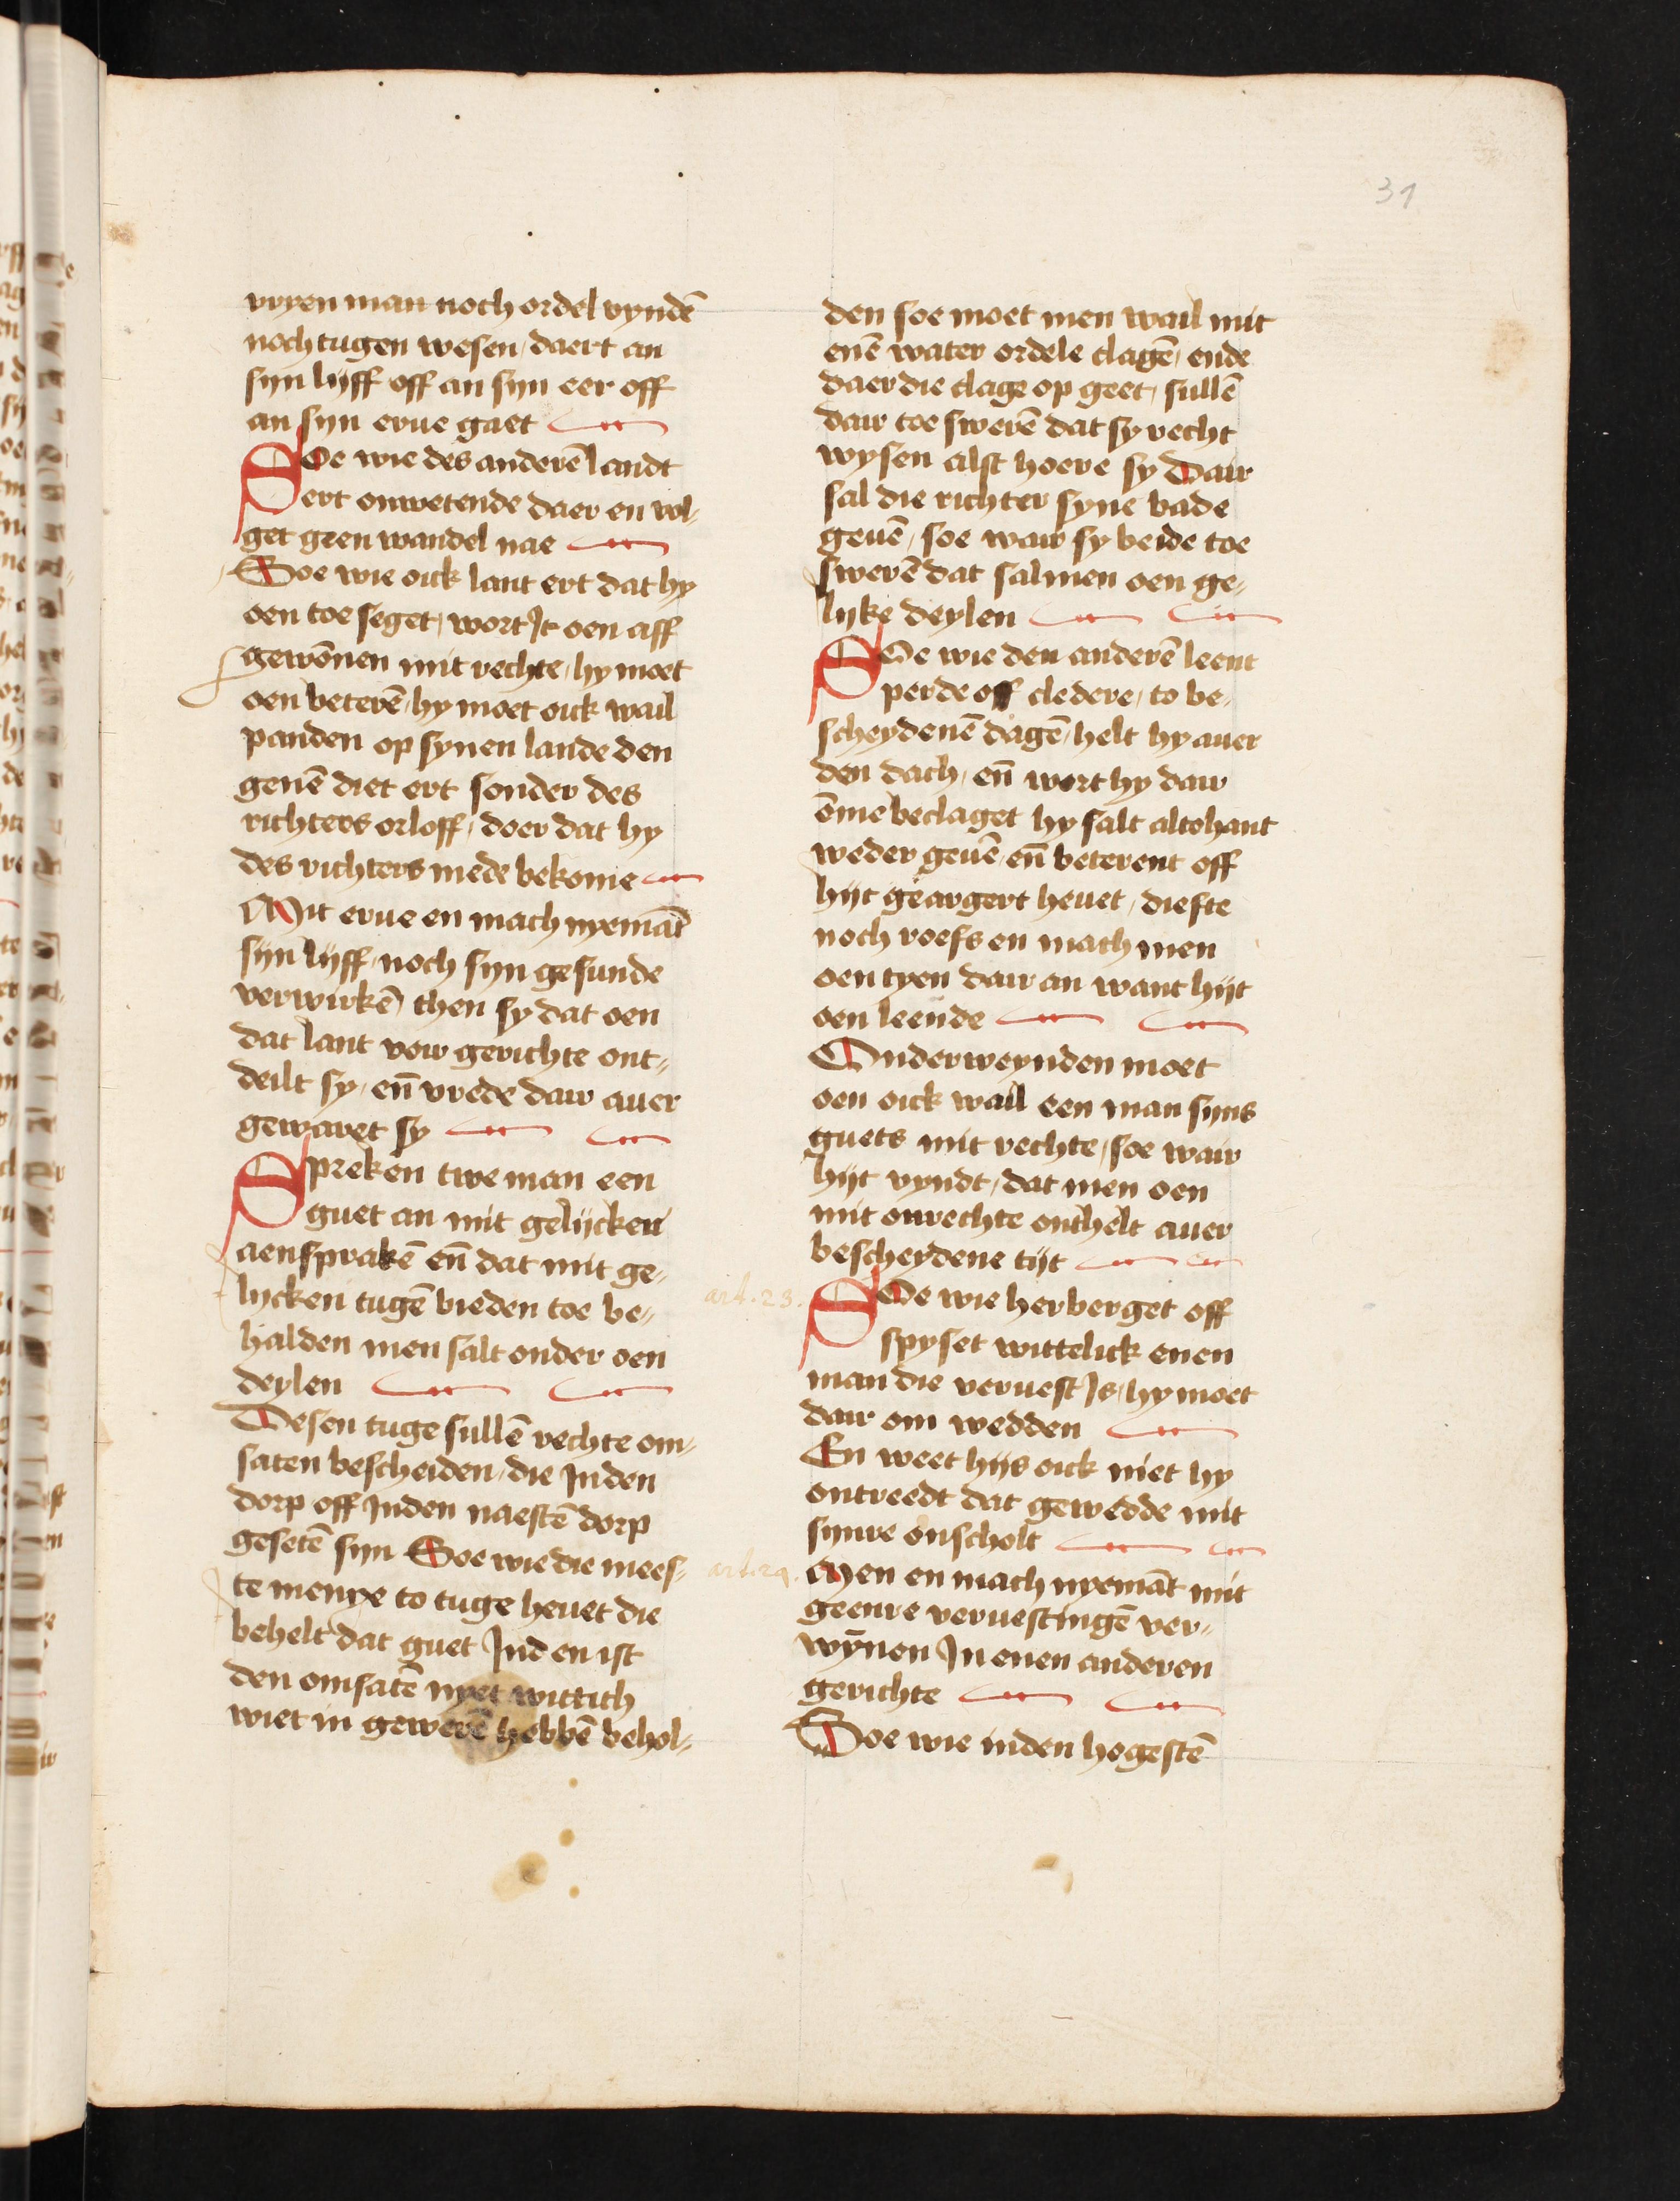 31
vryen man noch ordel vyndē
noch tugen wesen / daert an
syn lyff off an syn eer off
an syn erue gaet
Soe wie des anderē landt
ert onwetende daer en vol„
get geen wandel nae
Soe wie oick lant ert dat hy
oen toe seget / wort It oen aff
gewōnen mit rechte / hy moet
oen beterē / hy moet oick wail
panden op synen lande den
genē diet ert sonder des
richters orloff / doer dat hy
des richters mede bekome
Mit erue en mach nyemāt
syn lyff / noch syn gesunde
verwirkē / then sy dat oen
dat lant vow gerichte ont„
deilt sy / en̄ vrede dair auer
gewaret sy
Spreken twe man een
guet an mit gelijcken
aenspraken̄ en̄ dat mit ge„
lycken tugē bieden toe be„
halden men salt onder oen
deylen
Desen tuge sullē rechte om„
saten bescheiden / die Inden
dorp off Inden naestē dorp
gesetē syn Soe wie die mees„
te menye to tuge heuet die
behelt dat guet Ind en ist
den omsatē nyet wittich
wiet in gewerē hebbē behol„
den soe moet men wail mit
enē water ordele clagē / ende
daer die clage op geet / sullē
dair toe swerē dat sy recht
wysen alst hoere sy Dair
sal die richter syne bade
geuē / soe wair sy beide toe
swerē dat salmen oen ge„
lijke deylen
Soe wie den anderē leent
perde off cledere / to be„
scheydenē dagē / helt hy auer
den dach / en̄ wort hy dair
ōme beclaget hy salt altohant
weder geuē en̄ beterent off
hijt geargert heuet / diefte
noch roefs en mach men
oen tyen dair an want hijt
oen leende
Onderweynden moet
oen oick wail een man syns
guets mit rechte / soe wair
hijt vyndt / dat men oen
mit onrechte onthelt auer
bescheydene tijt
art. 23.
Soe wie herberget off
spyset wittelick enen
man die veruest Is / hy moet
dair om wedden
En weet hijs oick niet hy
ontreedt dat gewedde mit
synre onscholt
art. 24.
Men en mach nyemāt mit
geenre veruestingē ver„
wȳnen In enen anderen
gerichte
Soe wie inden hogestē